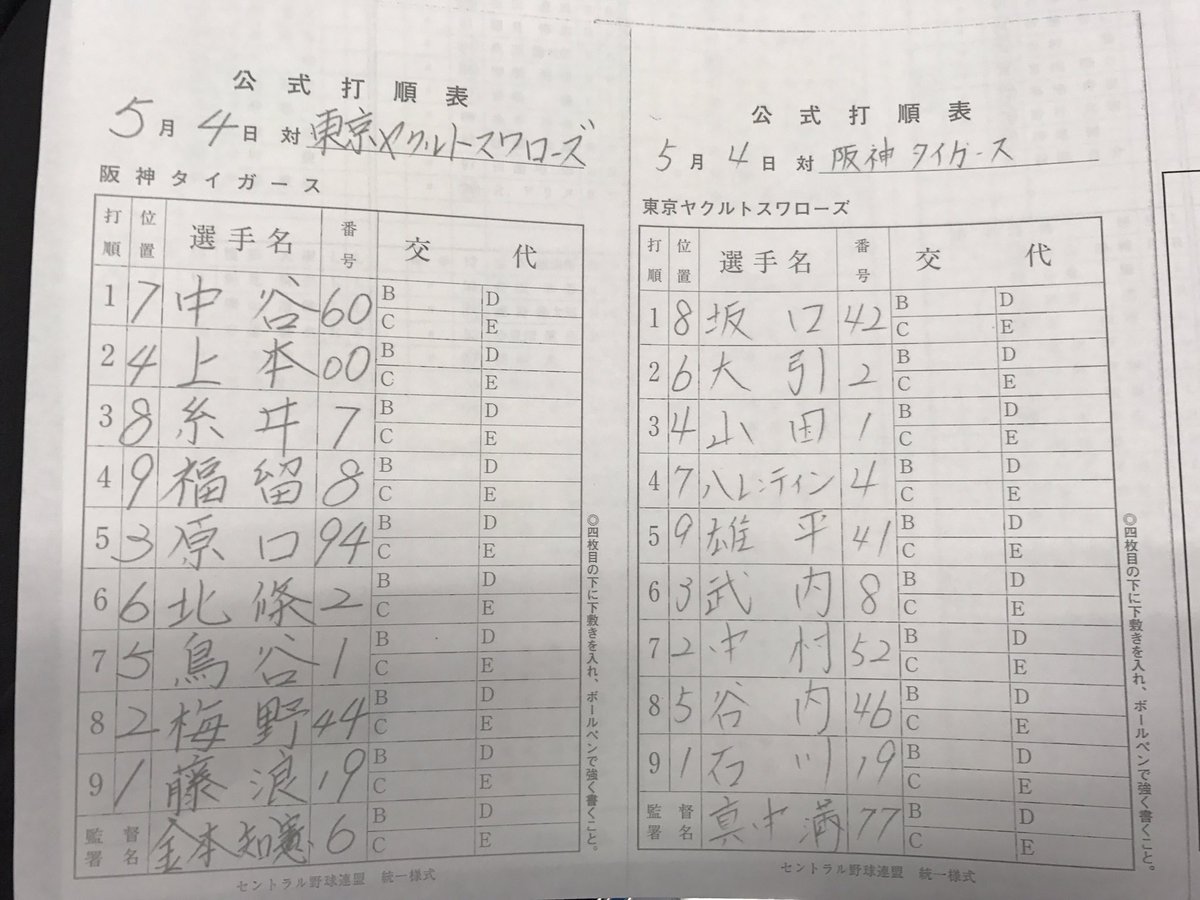 公式打順表
5月4日 対 東京ヤクルトスワローズ
阪神タイガース
打順 位置 選手名 番号 交代
1 7 中谷 60 B D C E
2 4 上本 00 B D C E
3 8 糸井 7 B D C E
4 9 福留 8 B D C E
5 3 原口 94 B D C E
6 6 北條 2 B D C E
7 5 鳥谷 1 B D C E
8 2 梅野 44 B D C E
9 1 藤浪 19 B D C E
監督署名 金本知憲 6 B D C E
◎四枚目の下に下敷きを入れ、ボールペンで強く書くこと。
セントラル野球連盟 統一様式
公式打順表
5月4日 対 阪神タイガース
東京ヤクルトスワローズ
打順 位置 選手名 番号 交代
1 8 坂口 42 B D C E
2 6 大引 2 B D C E
3 4 山田 1 B D C E
4 7 バレンティン 4 B D C E
5 9 雄平 41 B D C E
6 3 武内 8 B D C E
7 2 中村 52 B D C E
8 5 谷内 46 B D C E
9 1 石川 19 B D C E
監督署名 真中満 77 B D C E
◎四枚目の下に下敷きを入れ、ボールペンで強く書くこと。
セントラル野球連盟 統一様式